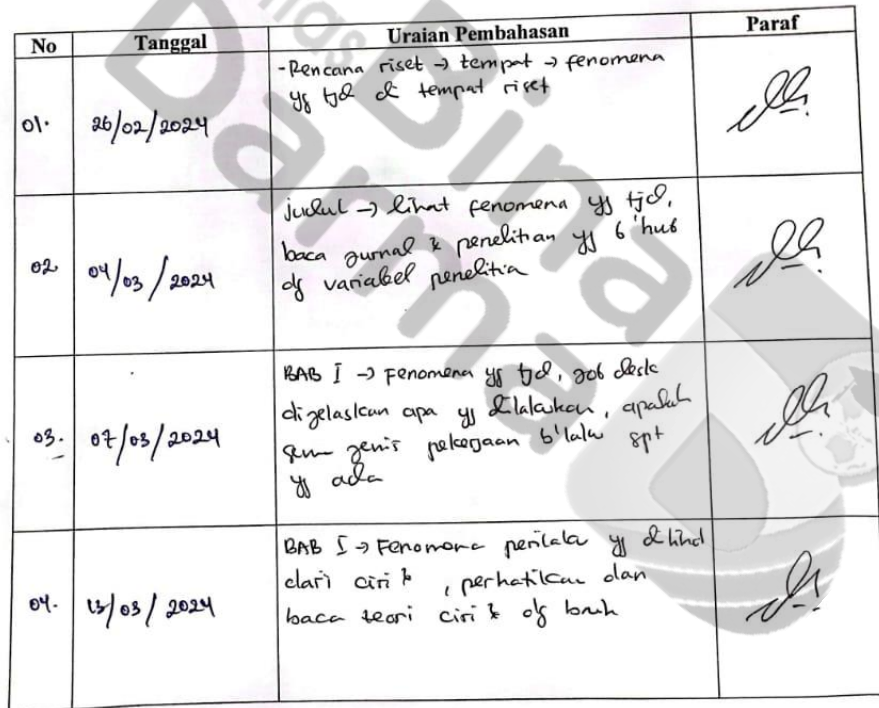 No Tanggal Uraian Pembahasan Paraf
01. 26/02/2024
-Rencana riset → tempat → fenomena
yg tjd di tempat riset
02 04/03/2024
judul → lihat fenomena yg tjd,
baca jurnal & penelitian yg b'hub
dg variabel penelitia
03. 07/03/2024
BAB I → Fenomena yg tjd, job desk
dijelaskan apa yg dilakukan, apakah
jenis pekerjaan b'laku spt
yg ada
04. 13/03/2024
BAB I → Fenomena perilaku yg dilihat
dari ciri , perhatikan dan
baca teori ciri dg baik
Bina
Darma